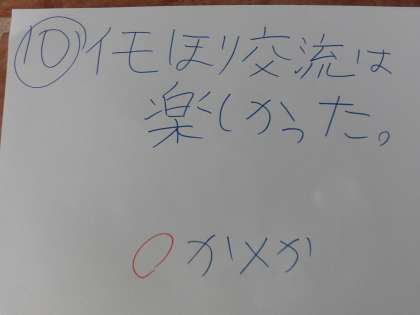 ⑩イモほり交流は
楽しかった。
○か×か